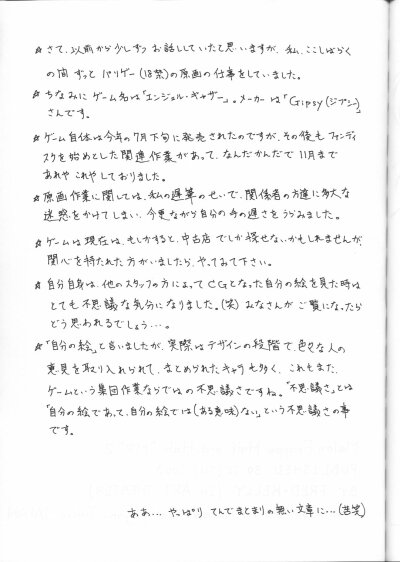 ☆ さて、以前から少しずつお話ししていたと思いますが、私、ここしばらく
の間ずっとパソゲー(18禁)の原画の仕事をしていました。
☆ ちなみにゲーム名は「エンジェル・ギャザー」。メーカーは「Gipsy(ジプシー)」
さんです。
☆ ゲーム自体は今年の7月下旬に発売されたのですが、その後もファンディ
スクを始めとした関連作業があって、なんだかんだで11月まで
あれやこれやしておりました。
☆ 原画作業に関しては、私の遅筆のせいで、関係者の方達に多大な
迷惑をかけてしまい、今更ながら自分の手の遅さをうらみました。
☆ ゲームは現在は、もしかすると、中古店でしか探せないかもしれませんが、
関心を持たれた方がいましたら、やってみて下さい。
☆ 自分自身は、他のスタッフの方によってCGとなった自分の絵を見た時は
とても不思議な気分になりました。(笑)みなさんがご覧になったら
どう思われるでしょう…。
☆ 「自分の絵」と言いましたが、実際はデザインの段階で、色々な人の
意見を取り入れられて、まとめられたキャラも多く、これもまた、
ゲームという集団作業ならではの不思議さですね。「不思議さ」とは
「自分の絵であって、自分の絵では(ある意味)ない」という不思議さの事
です。
ああ… やっぱり てんでまとまりの無い文章に…(苦笑)